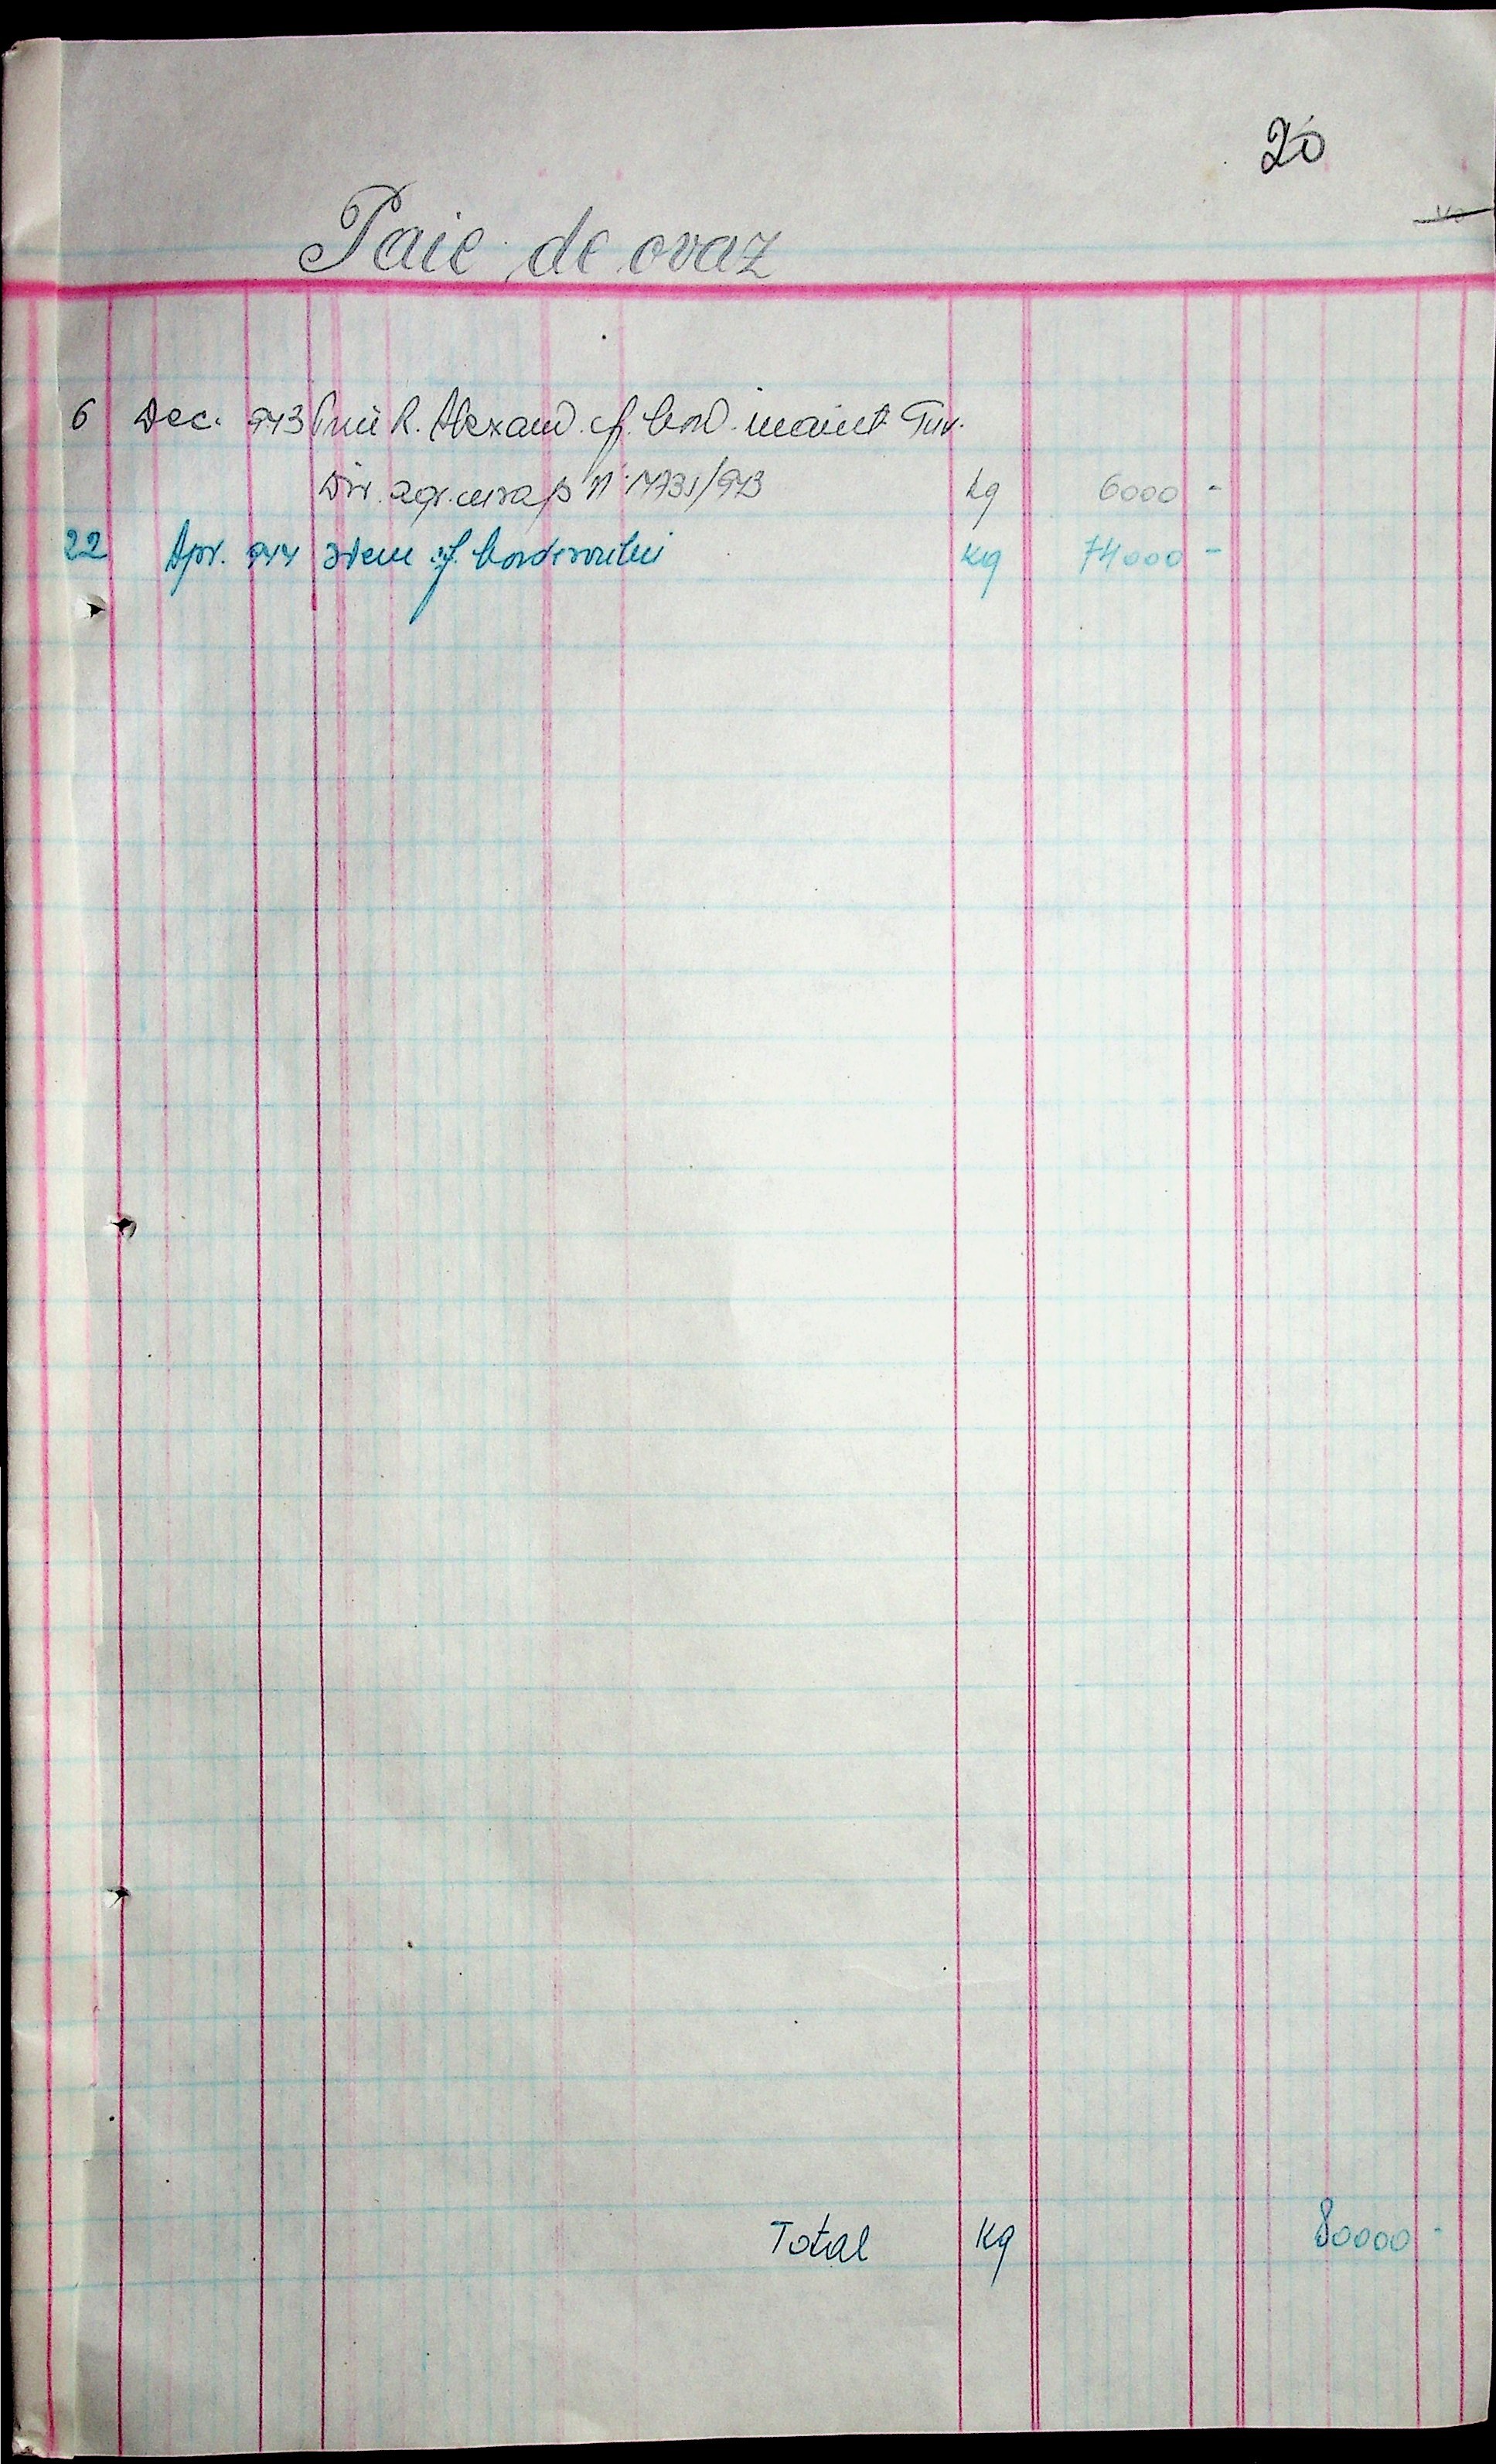 20
Paie de ovaz
6 Dec. 943 Prin R. Alexand. cf. bord. inaint Guv.
Dir. agr. cu rap n° 1773/943 kg 6000 -
22 Apr. 944 Idem cf. borderoului kg 74000 -
Total Kg 80000 -